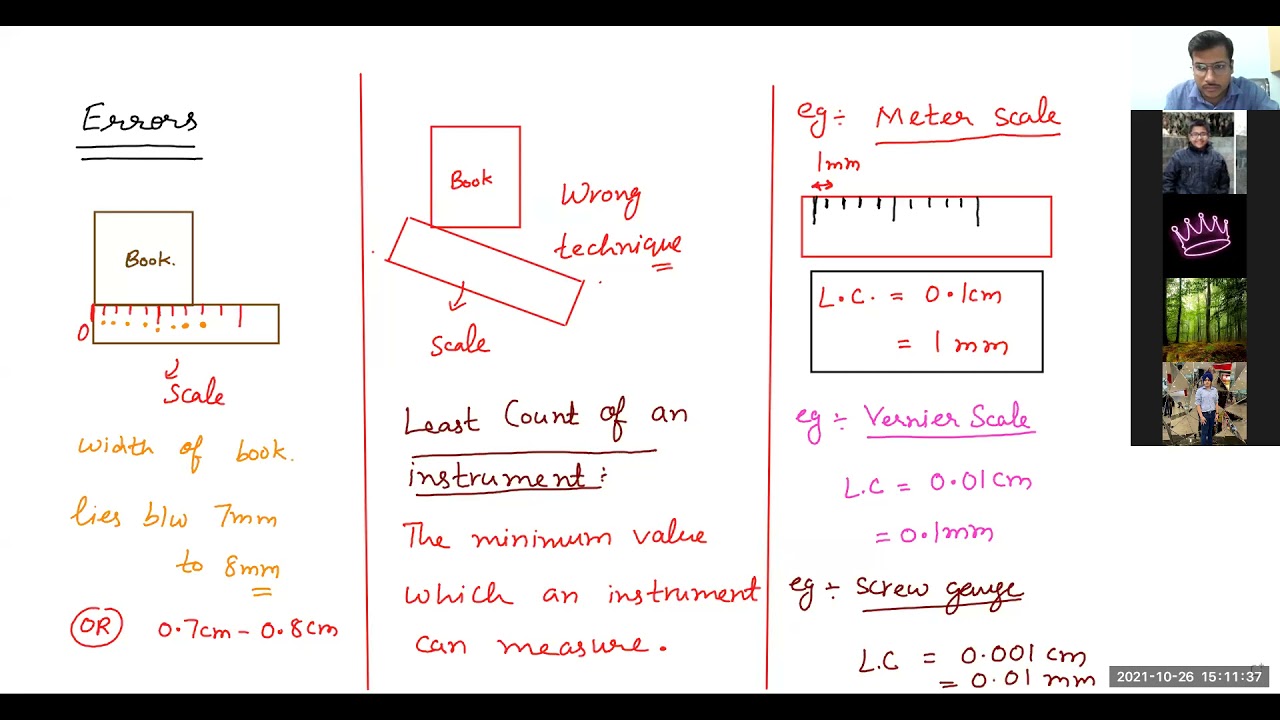 Errors
Book.
0
Scale
width of book.
lies b/w 7mm
to 8mm
OR 0.7cm - 0.8cm
Book
Wrong
technique
Scale
Least Count of an
instrument :
The minimum value
which an instrument
can measure.
eg ÷ Meter Scale
1mm
L.C. = 0.1cm
= 1mm
eg ÷ Vernier Scale
L.C = 0.01cm
= 0.1mm
eg ÷ Screw gauge
L.C = 0.001 cm
= 0.01 mm
2021-10-26 15:11:37